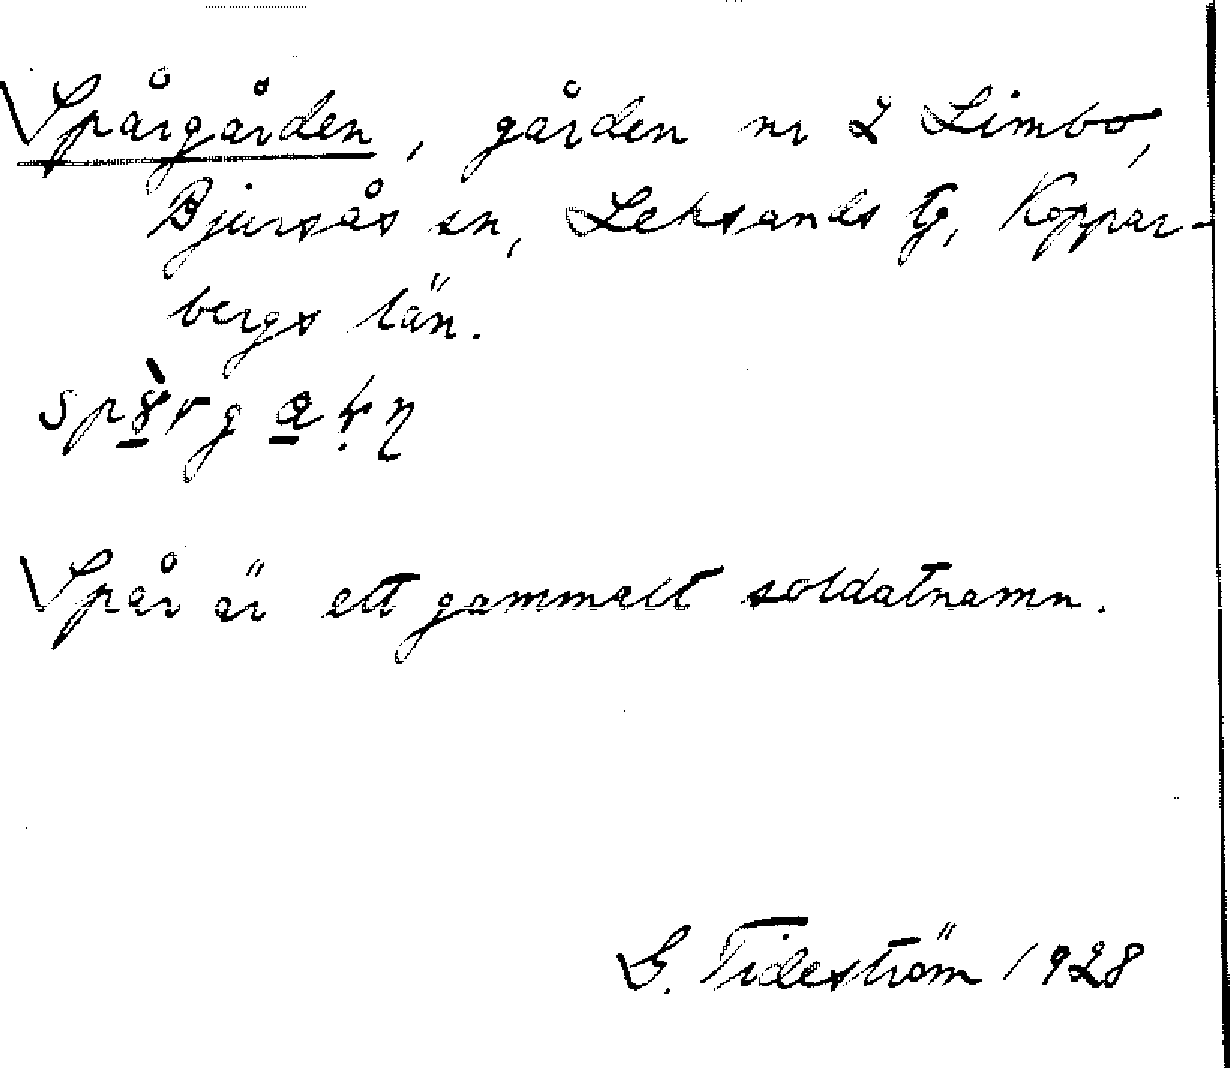 Spårgården, gården nr 2 Limbo,
Bjursås sn, Leksands tg, Koppar-
bergs län.
Spår är ett gammalt soldatnamn.
G. Tideström 1928